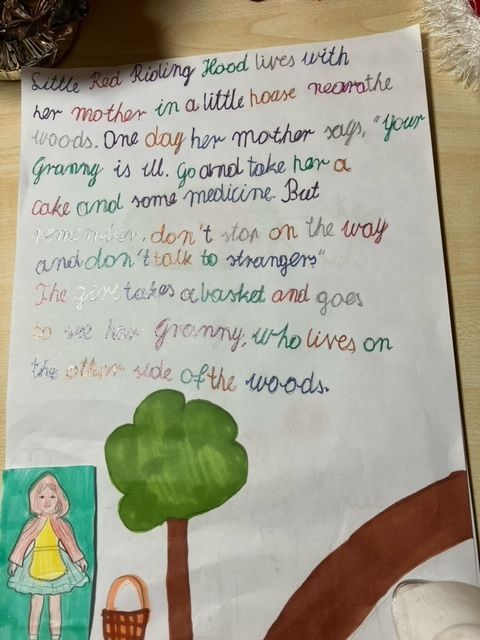 Little Red Riding Hood lives with
her mother in a little house near the
woods. One day her mother says, "Your
Granny is ill. Go and take her a
cake and some medicine. But
remember, don't stop on the way
and don't talk to strangers"
The girl takes a basket and goes
to see her Granny, who lives on
the other side of the woods.